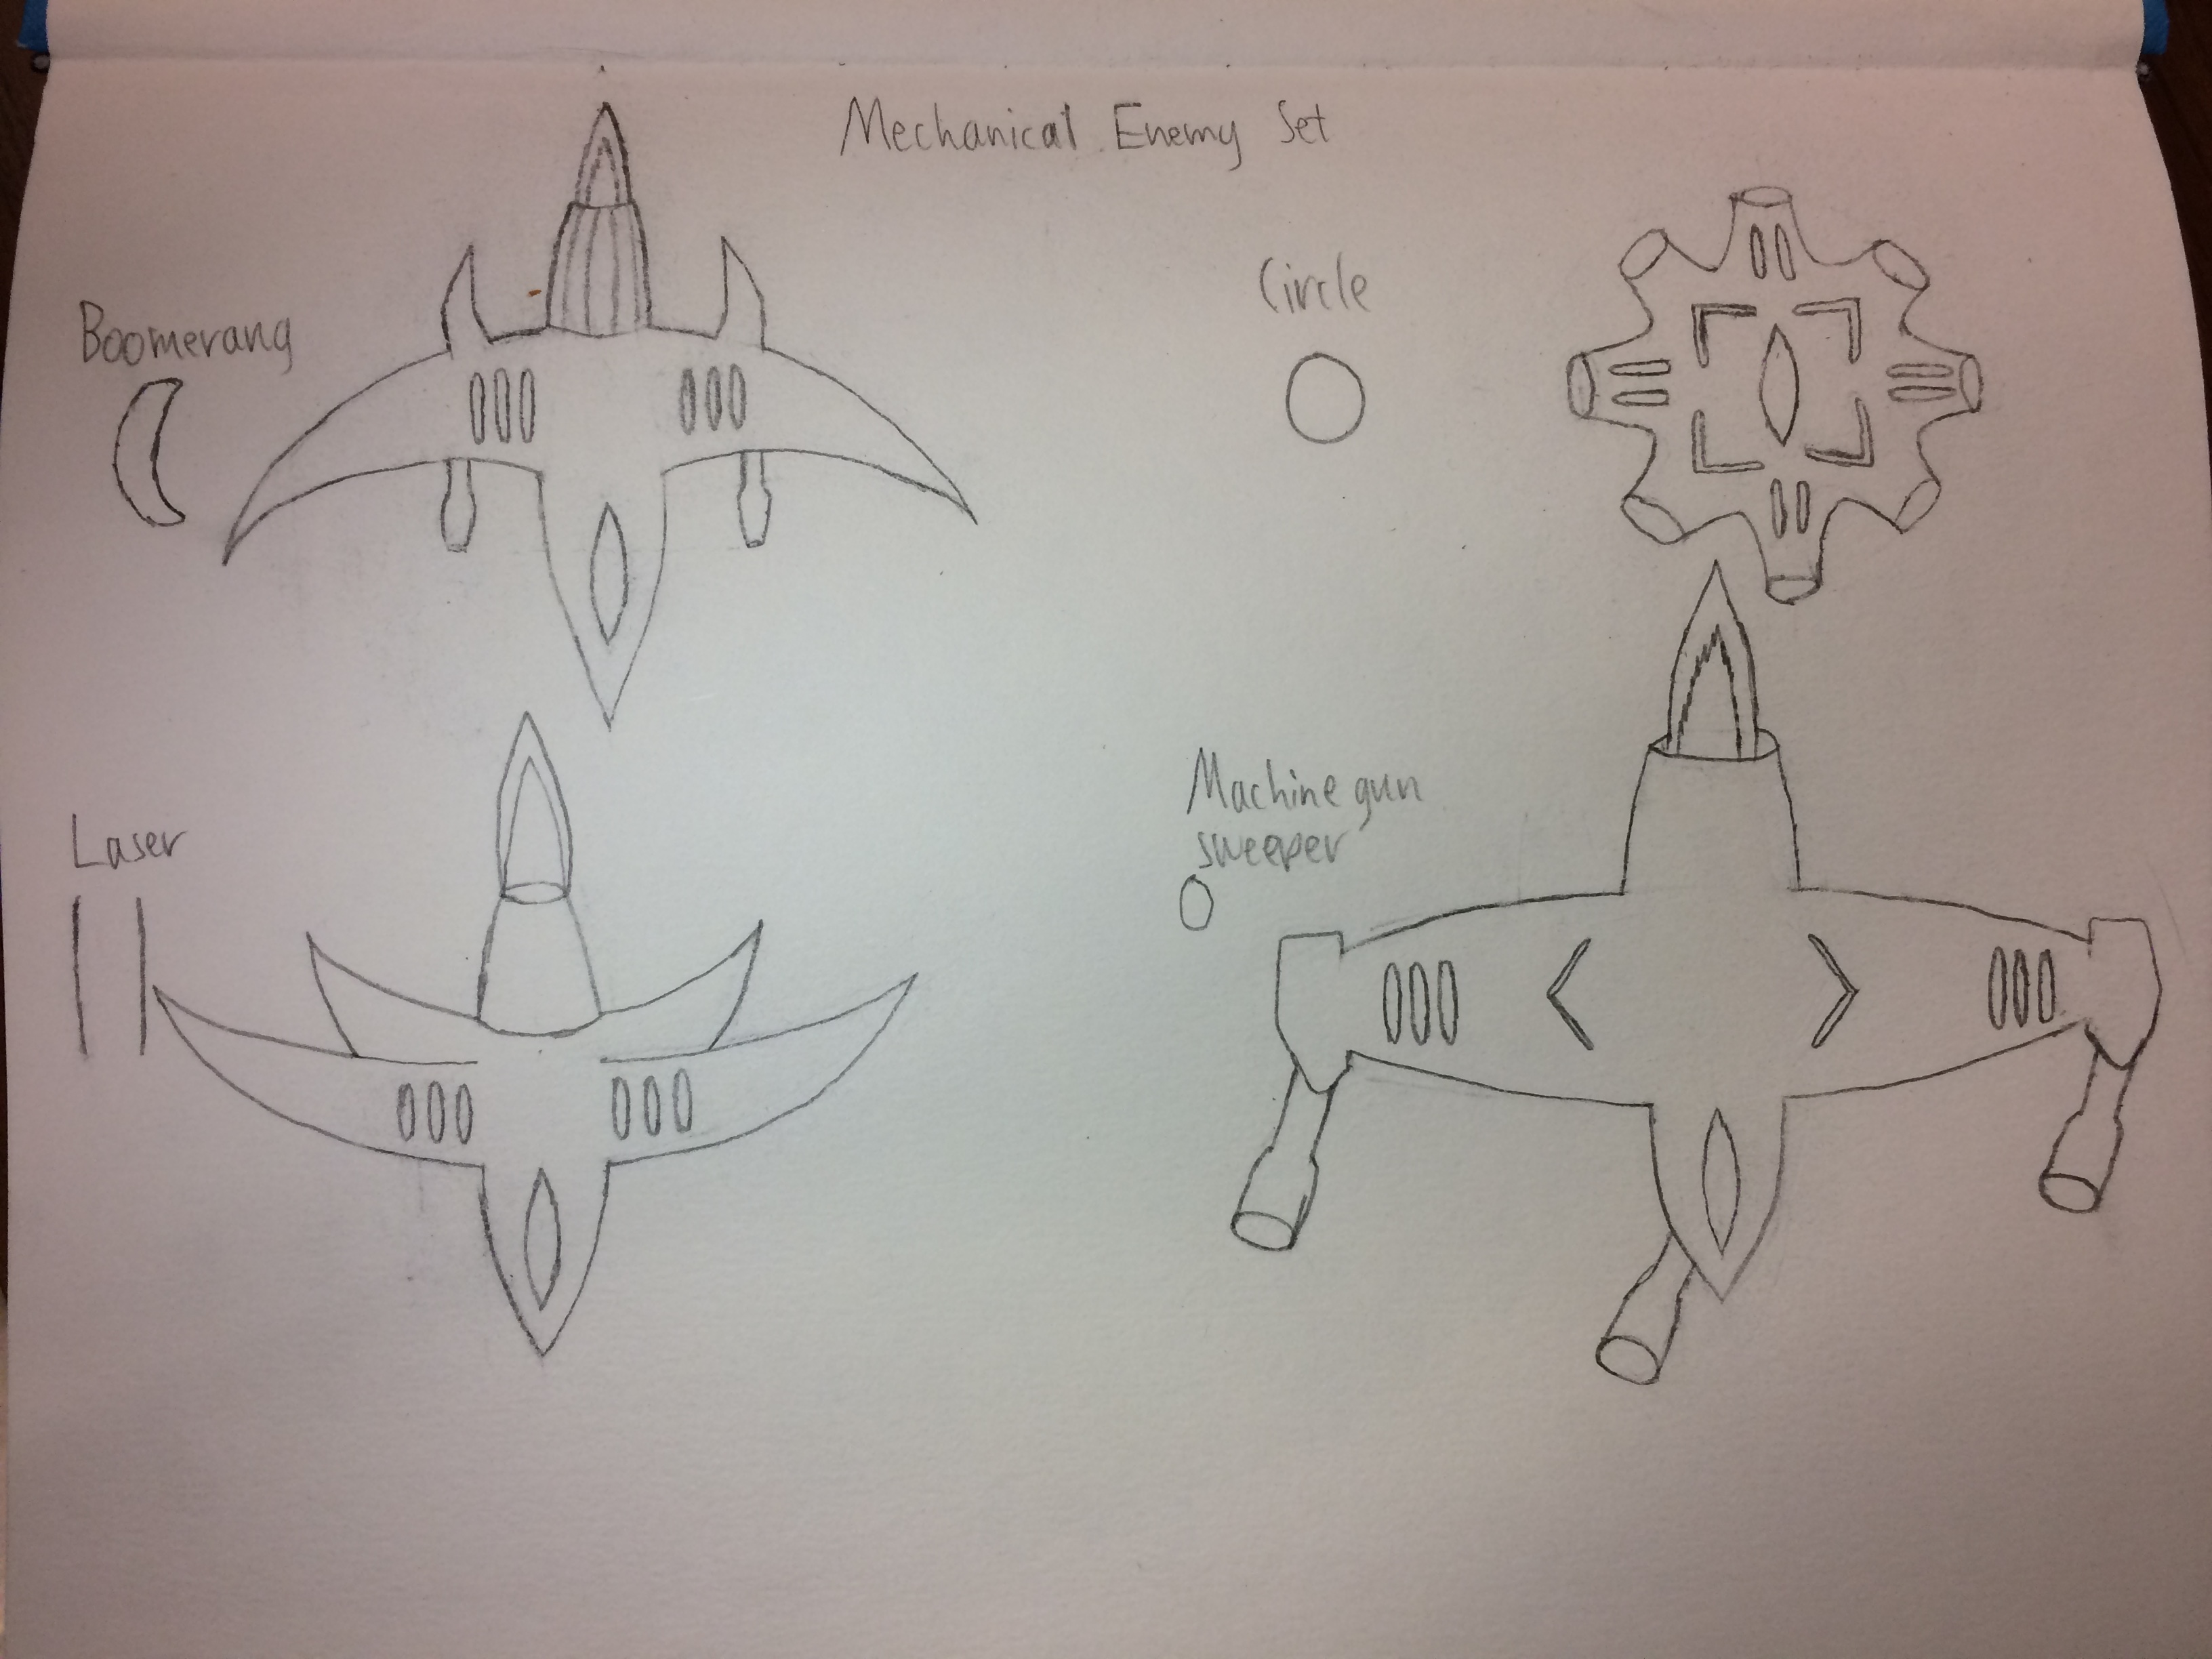 Mechanical Enemy Set
Boomerang
Circle
Laser
Machine gun
sweeper